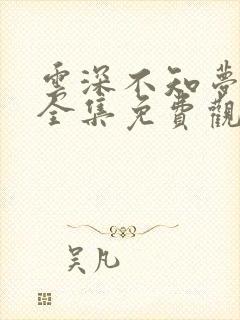 雲深不知夢
全集免費觀
吴凡